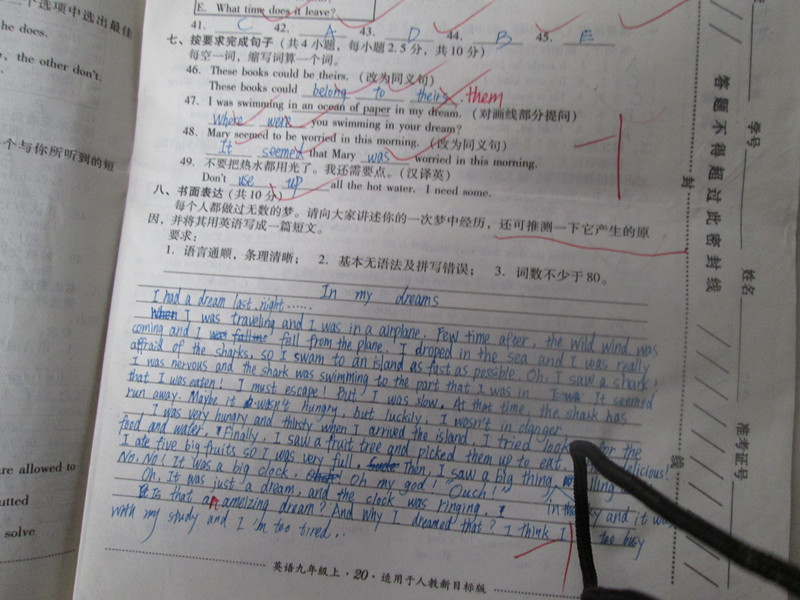 二个选项中选出最佳
he does.
, the other don't.
个与你所听到的短
are allowed to
utted
solve
E. What time does it leave?
41. C 42. A 43. D 44. B 45. E
七、按要求完成句子(共4小题,每小题2.5分,共10分)
每空一词,缩写词算一个词。
46. These books could be theirs. (改为同义句)
These books could belong to theirs. them
47. I was swimming in an ocean of paper in my dream. (对画线部分提问)
Where were you swimming in your dream?
48. Mary seemed to be worried in this morning. (改为同义句)
It seemed that Mary was worried in this morning.
49. 不要把热水都用光了。我还需要点。(汉译英)
Don't use up all the hot water. I need some.
八、书面表达(共10分)
每个人都做过无数的梦。请向大家讲述你的一次梦中经历,还可推测一下它产生的原
因,并将其用英语写成一篇短文。
要求:
1. 语言通顺,条理清晰; 2. 基本无语法及拼写错误; 3. 词数不少于80。
In my dreams
I had a dream last night......
I was traveling and I was in a airplane. Few time after, the wild wind was
coming and I fall from the plane. I droped in the sea and I was really
affraid of the sharks, so I swam to an island as fast as possible. Oh, I saw a shark!
I was nervous and the shark was swimming to the part that I was in. It seemed
that I was eaten! I must escape! But I was slow. At that time, the shark has
run away. Maybe it wasn't hungry, but luckily, I wasn't in danger.
I was very hungry and thirsty when I arrived the island, I tried for the
food and water. Finally, I saw a fruit tree and picked them up to eat. delicious!
I ate five big fruits so I was very full. Then, I saw a big thing
No, No! It was a big clock. Oh my god! "Ouch!" and it was
Oh, it was just a dream, and the clock was ringing.
Is that an ameizing dream? And why I dreamed that? I think I too busy
with my study and I'm too tired..
英语九年级上·20·适用于人教新目标版
答题不得超过此密封线
封
线
学号
姓名
准考证号